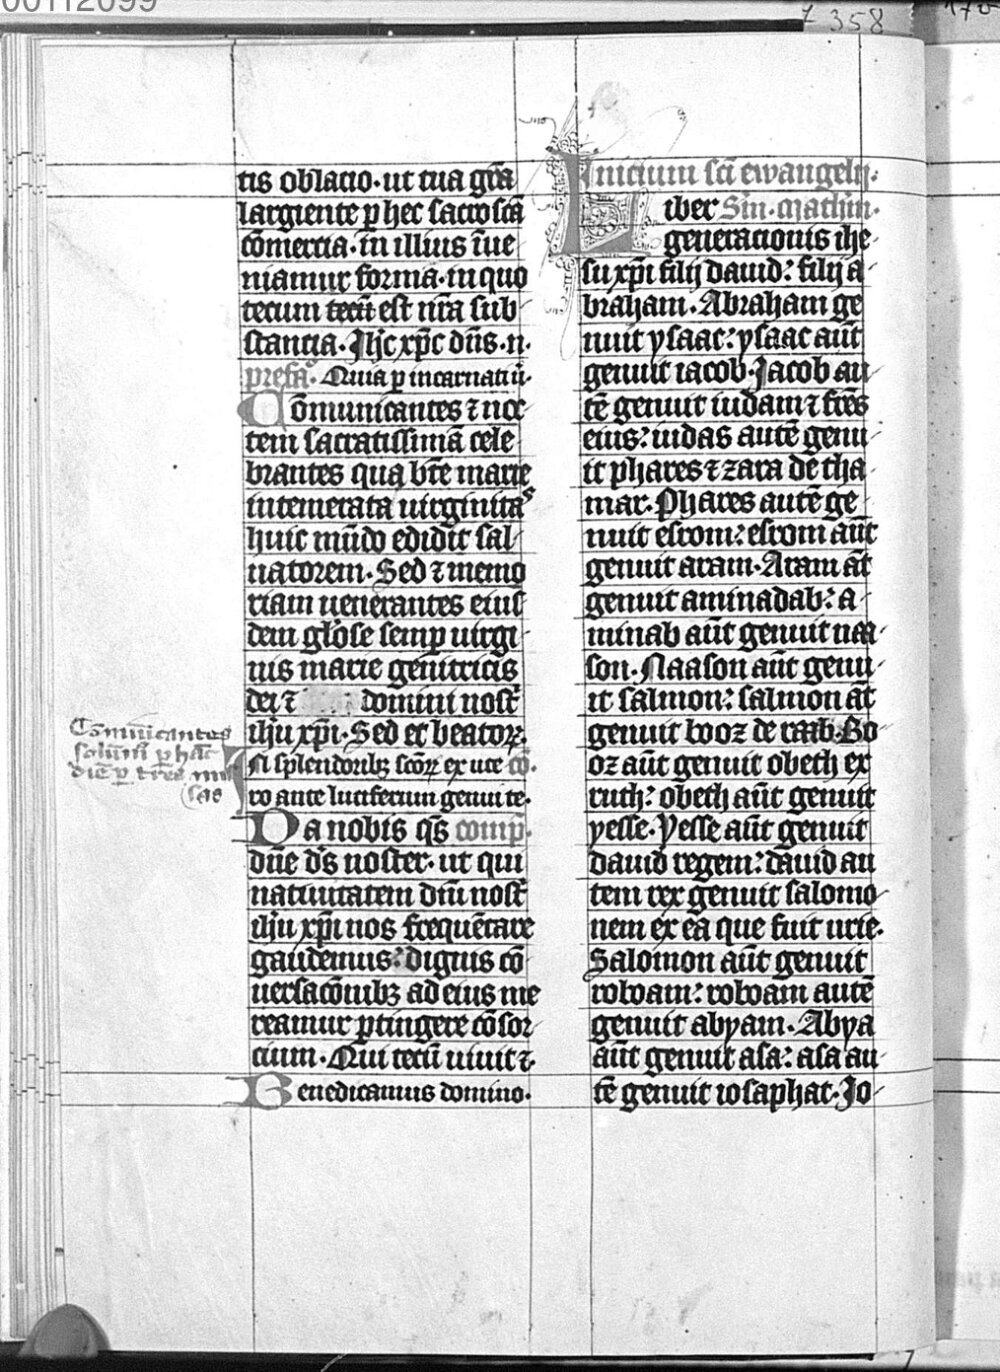 00112099
7 358
tis oblacio · ut tua gr̄a
largiente p hec sacrosc̄a
cōmercia · in illius īue
niamur forma · in quo
tecum tecū est nr̄a sub
stancia · Ih̄c xp̄c dn̄s · n ·
prefaᵒ · Quia p incarnati ū ·
Cōmunicantes ⁊ noc
tem sacratissimā cele
brantes qua bt̄e marie
intemerata uirginitaˢ
huic mūdo edidit sal
uatorem · Sed ⁊ memo
riam uenerantes eius
dem glōse semp uirgi
nis marie genitricis
dei ⁊ domini nostr̄
ih̄u xp̄i · Sed et beatoꝝ ·
In splendoribꝫ sc̄oꝝ ex ute cō ·
ro ante luciferum genui te ·
Da nobis qs̄ comp̄ ·
dn̄e ds̄ noster · ut qui
natiuitatem dn̄i nostr̄
ih̄u xp̄i nos frequētare
gaudemus : dignis cō
uersacōnibꝫ ad eius me
reamur ptingere cōsor
cium · Qui tecū uiuit ⁊ ·
Benedicamus domino ·
Cōmūicantes
solūm̄ p hāc
diē p tres mi
sas
Inicium sc̄i ewangelij ·
Liber Sn̄m · mathm̄ ·
generacionis ihe
su xp̄i filij dauid : filij a
braham · Abraham ge
nuit ysaac : ysaac aūt
genuit iacob · Jacob au
tē genuit iudam ⁊ fr̄es
eius : iudas autē genu
it phares ⁊ zara de tha
mar · Phares autē ge
nuit esrom : esrom aūt
genuit aram · Aram āt
genuit aminadab : a
minab aūt genuit naa
son · Naason aūt genu
it salmon : salmon āt
genuit booz de raab · Bo
oz aūt genuit obeth ex
ruth : obeth aūt genuit
yesse · Yesse aūt genuit
dauid regem : dauid au
tem rex genuit salomo
nem ex ea que fuit urie ·
Salomon aūt genuit
roboam : roboam autē
genuit abyam · Abya
aūt genuit asa : asa au
tē genuit iosaphat · Jo